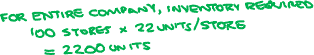 FOR ENTIRE COMPANY, INVENTORY REQUIRED
100 STORES × 22 UNITS/STORE
= 2200 UNITS